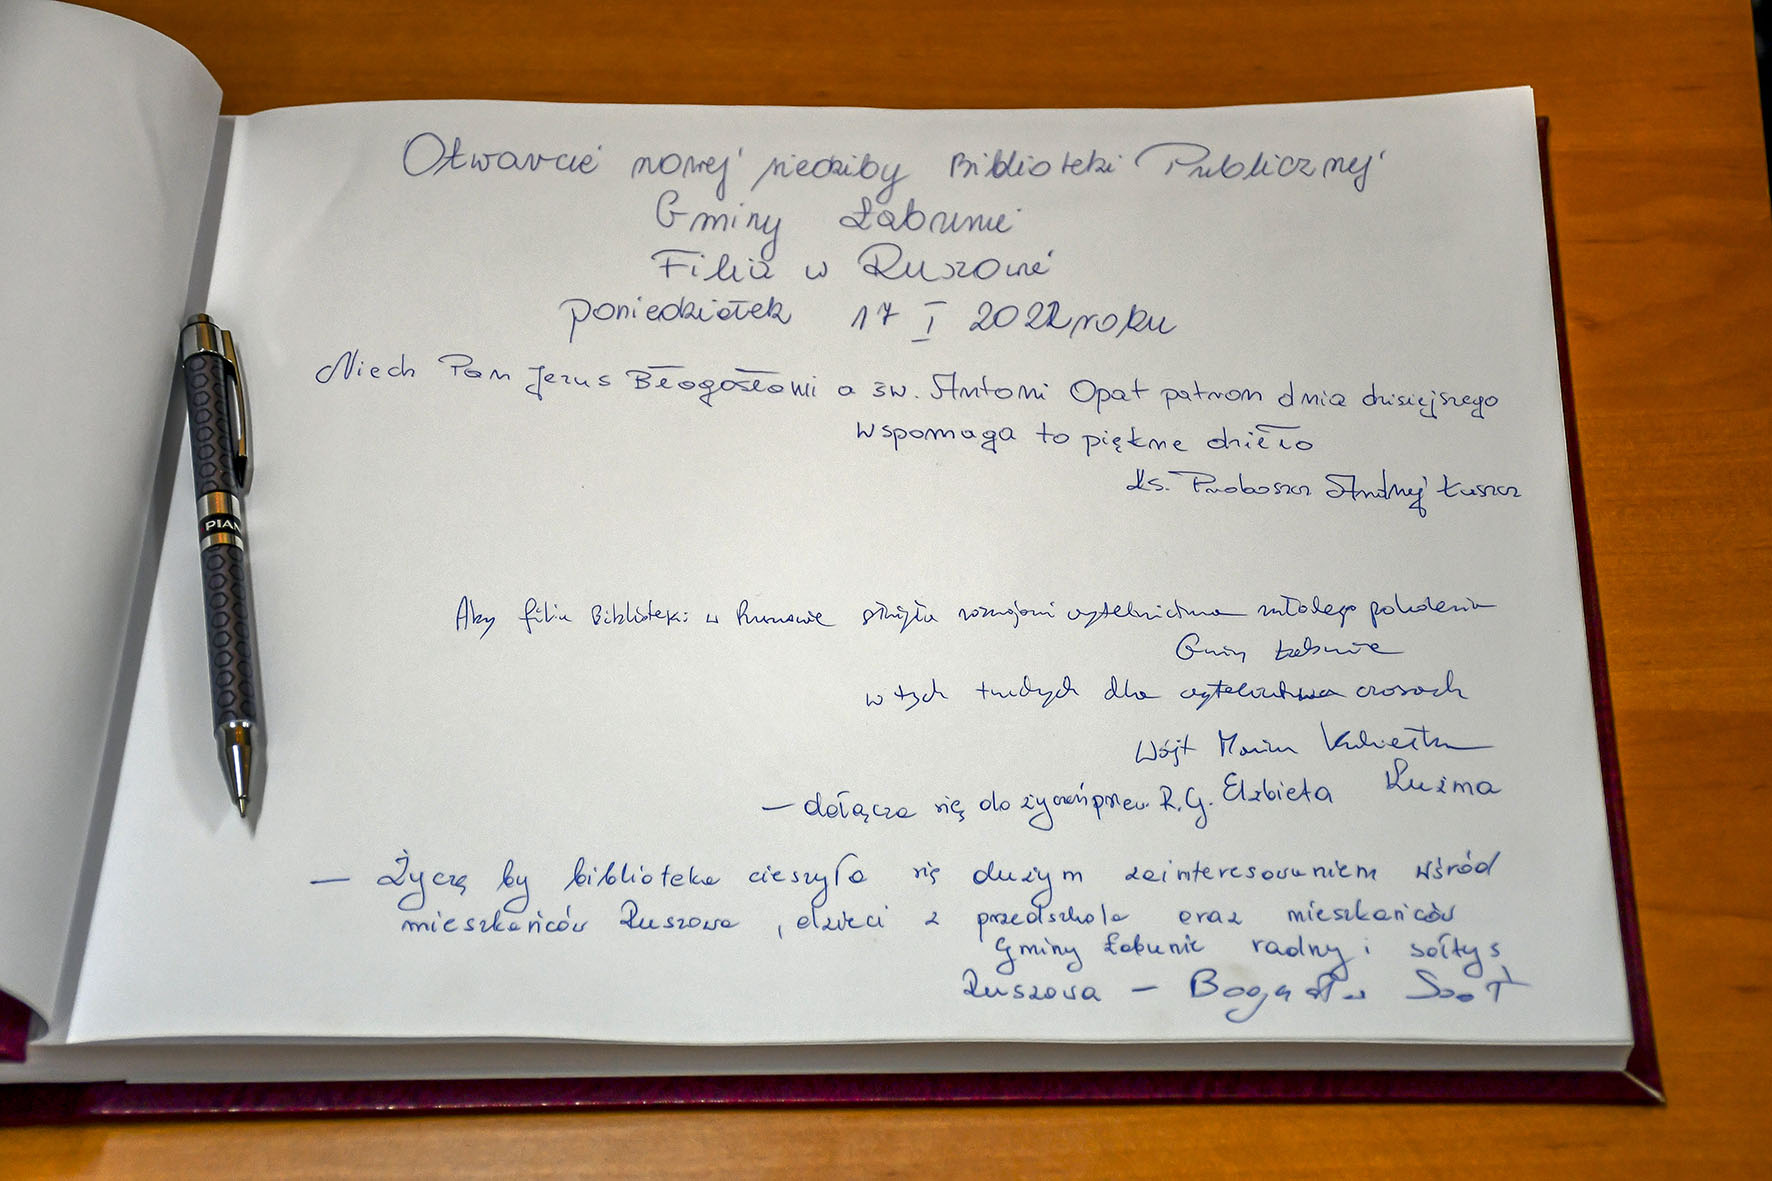 Otwarcie nowej siedziby Biblioteki Publicznej
Gminy Łabunie
Filia w Ruszowie
poniedziałek 17 I 2022 roku
Niech Pan Jezus Błogosławi a św. Antoni Opat patron dnia dzisiejszego
wspomaga to piękne dzieło
Ks. Proboszcz Andrzej Łuszcz
Aby filia Biblioteki w Ruszowie służyła rozwojowi czytelnictwa młodego pokolenia
Gminy Łabunie
w tych trudnych dla czytelnictwa czasach
Wójt Mariusz Kukiełka
— dołącza się do życzeń przew. R.G. Elżbieta Kuźma
— Życzę by biblioteka cieszyła się dużym zainteresowaniem wśród
mieszkańców Ruszowa, dzieci z przedszkola oraz mieszkańców
Gminy Łabunie radny i sołtys
Ruszowa —
PIAN